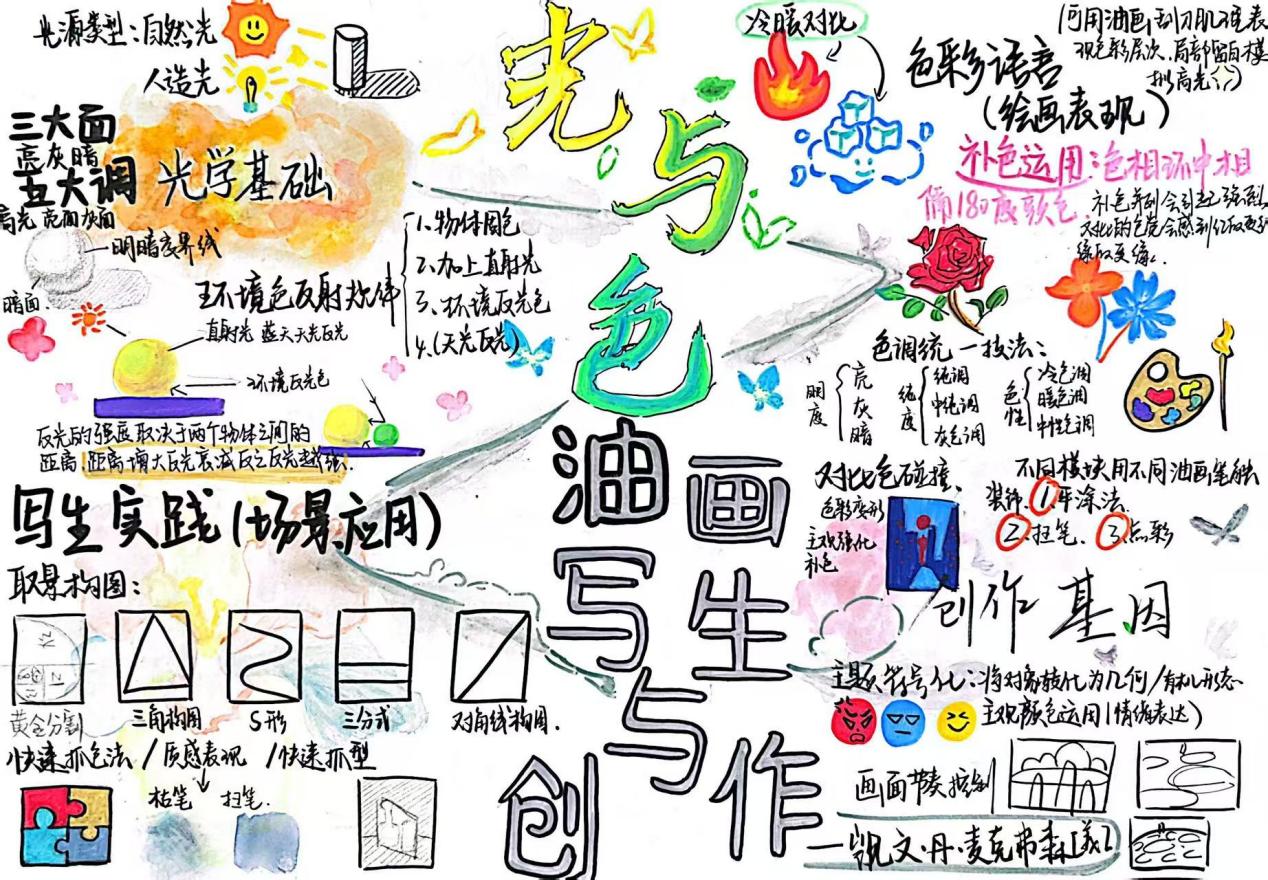 光与色
油画写生与创作
光源类型:自然光
人造光
三大面
亮灰暗
五大调
光学基础
高光 亮面 灰面
明暗交界线
暗面
环境色反射规律
1.物体固色
2.加上直射光
3、环境反光色
4.(天光反光)
直射光 蓝天天光反光
环境反光色
反光的强度取决于两个物体之间的
距离,距离增大反光衰减反之反光越强.
冷暖对比
色彩语言
(绘画表现)
可用油画刮刀肌理表
现色彩层次.局部留白模
拟高光
补色运用:色相环中相
隔180度颜色.
补色并列会引起强烈
对比的色觉会感到红极更红
绿极更绿.
色调统一技法:
明度
亮
灰
暗
纯度
纯调
中纯调
灰色调
色性
冷色调
暖色调
中性色调
对比色碰撞、
色彩变形
主观强化
补色
不同模块用不同油画笔触
装饰.①平涂法.
②扫笔、③点彩
写生实践(场景应用)
取景构图:
黄金分割
三角构图
S形
三分式
对角线构图.
快速抓色法/质感表现/快速抓型
枯笔 扫笔.
创作基因
主题符号化:将对象转化为几何/有机形态
主观颜色运用(情绪表达)
画面节奏控制